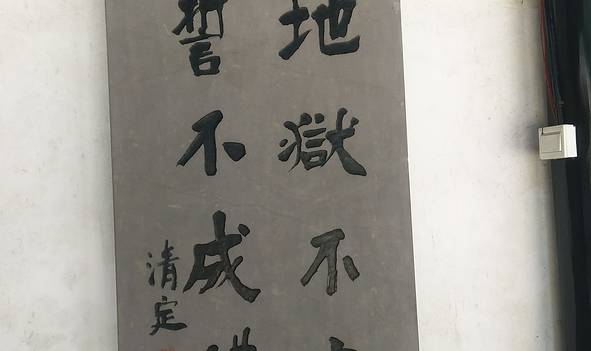 地獄不
誓不成
清定